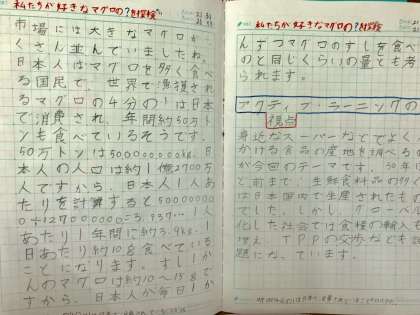 私たちが好きなマグロの?を探検
市場には大きなマグロがた
くさん並んでいましたね。
日本人はマグロを多く食べ
る国民で、世界で漁獲され
るマグロの4分の1は日本
で消費され、年間約50万ト
ンも食べているそうです。
50万トンは500000000kg。日
本人の人口は約1億2700万
人ですから、日本人1人あ
たりを計算すると50000000
0÷127000000=3.937…1人
あたり1年間に約3.9kg、1
日あたり約10gを食べている
ことになります。すし1か
んのマグロは約10~15gで
すから、日本人が毎日1か
私たちが好きなマグロの?を探検
んずつマグロのすしを食べ
のと同じくらいの量とも考
られます。
アクティブ・ラーニングの
視点
身近なスーパーなどでよく
かける食品の産地を調べる
が今回のテーマです。
と前まで、生鮮食料品の多く
は日本国内で生産されたもの
でした。しかし、グローバル
化した社会では食糧の輸入も
増え、TPPの交渉なども話
題になっています。